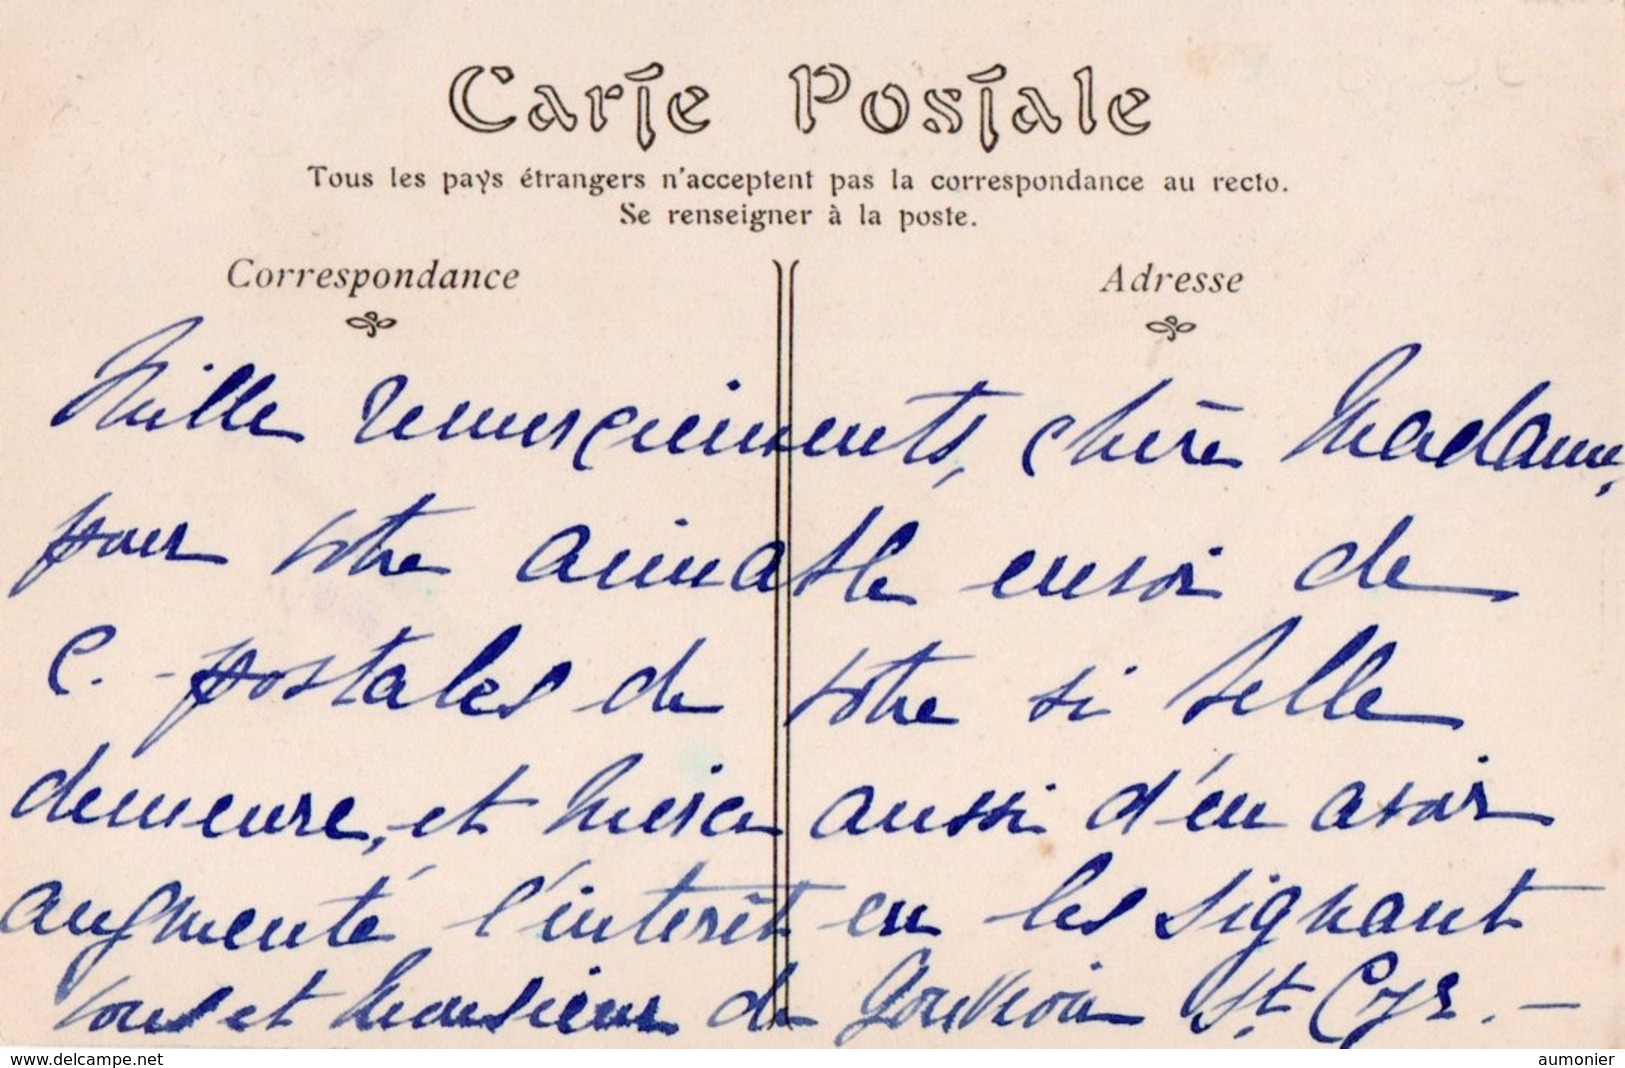 Carte Postale
Tous les pays étrangers n'acceptent pas la correspondance au recto.
Se renseigner à la poste.
Correspondance
Adresse
Mille remerciements, chère Madame,
pour votre aimable envoi de
C. postales de votre si belle
demeure, et merci aussi d'en avoir
augmenté l'intérêt en les signant
vous et Monsieur de Gouvion St Cyr. -
www.delcampe.net
aumonier